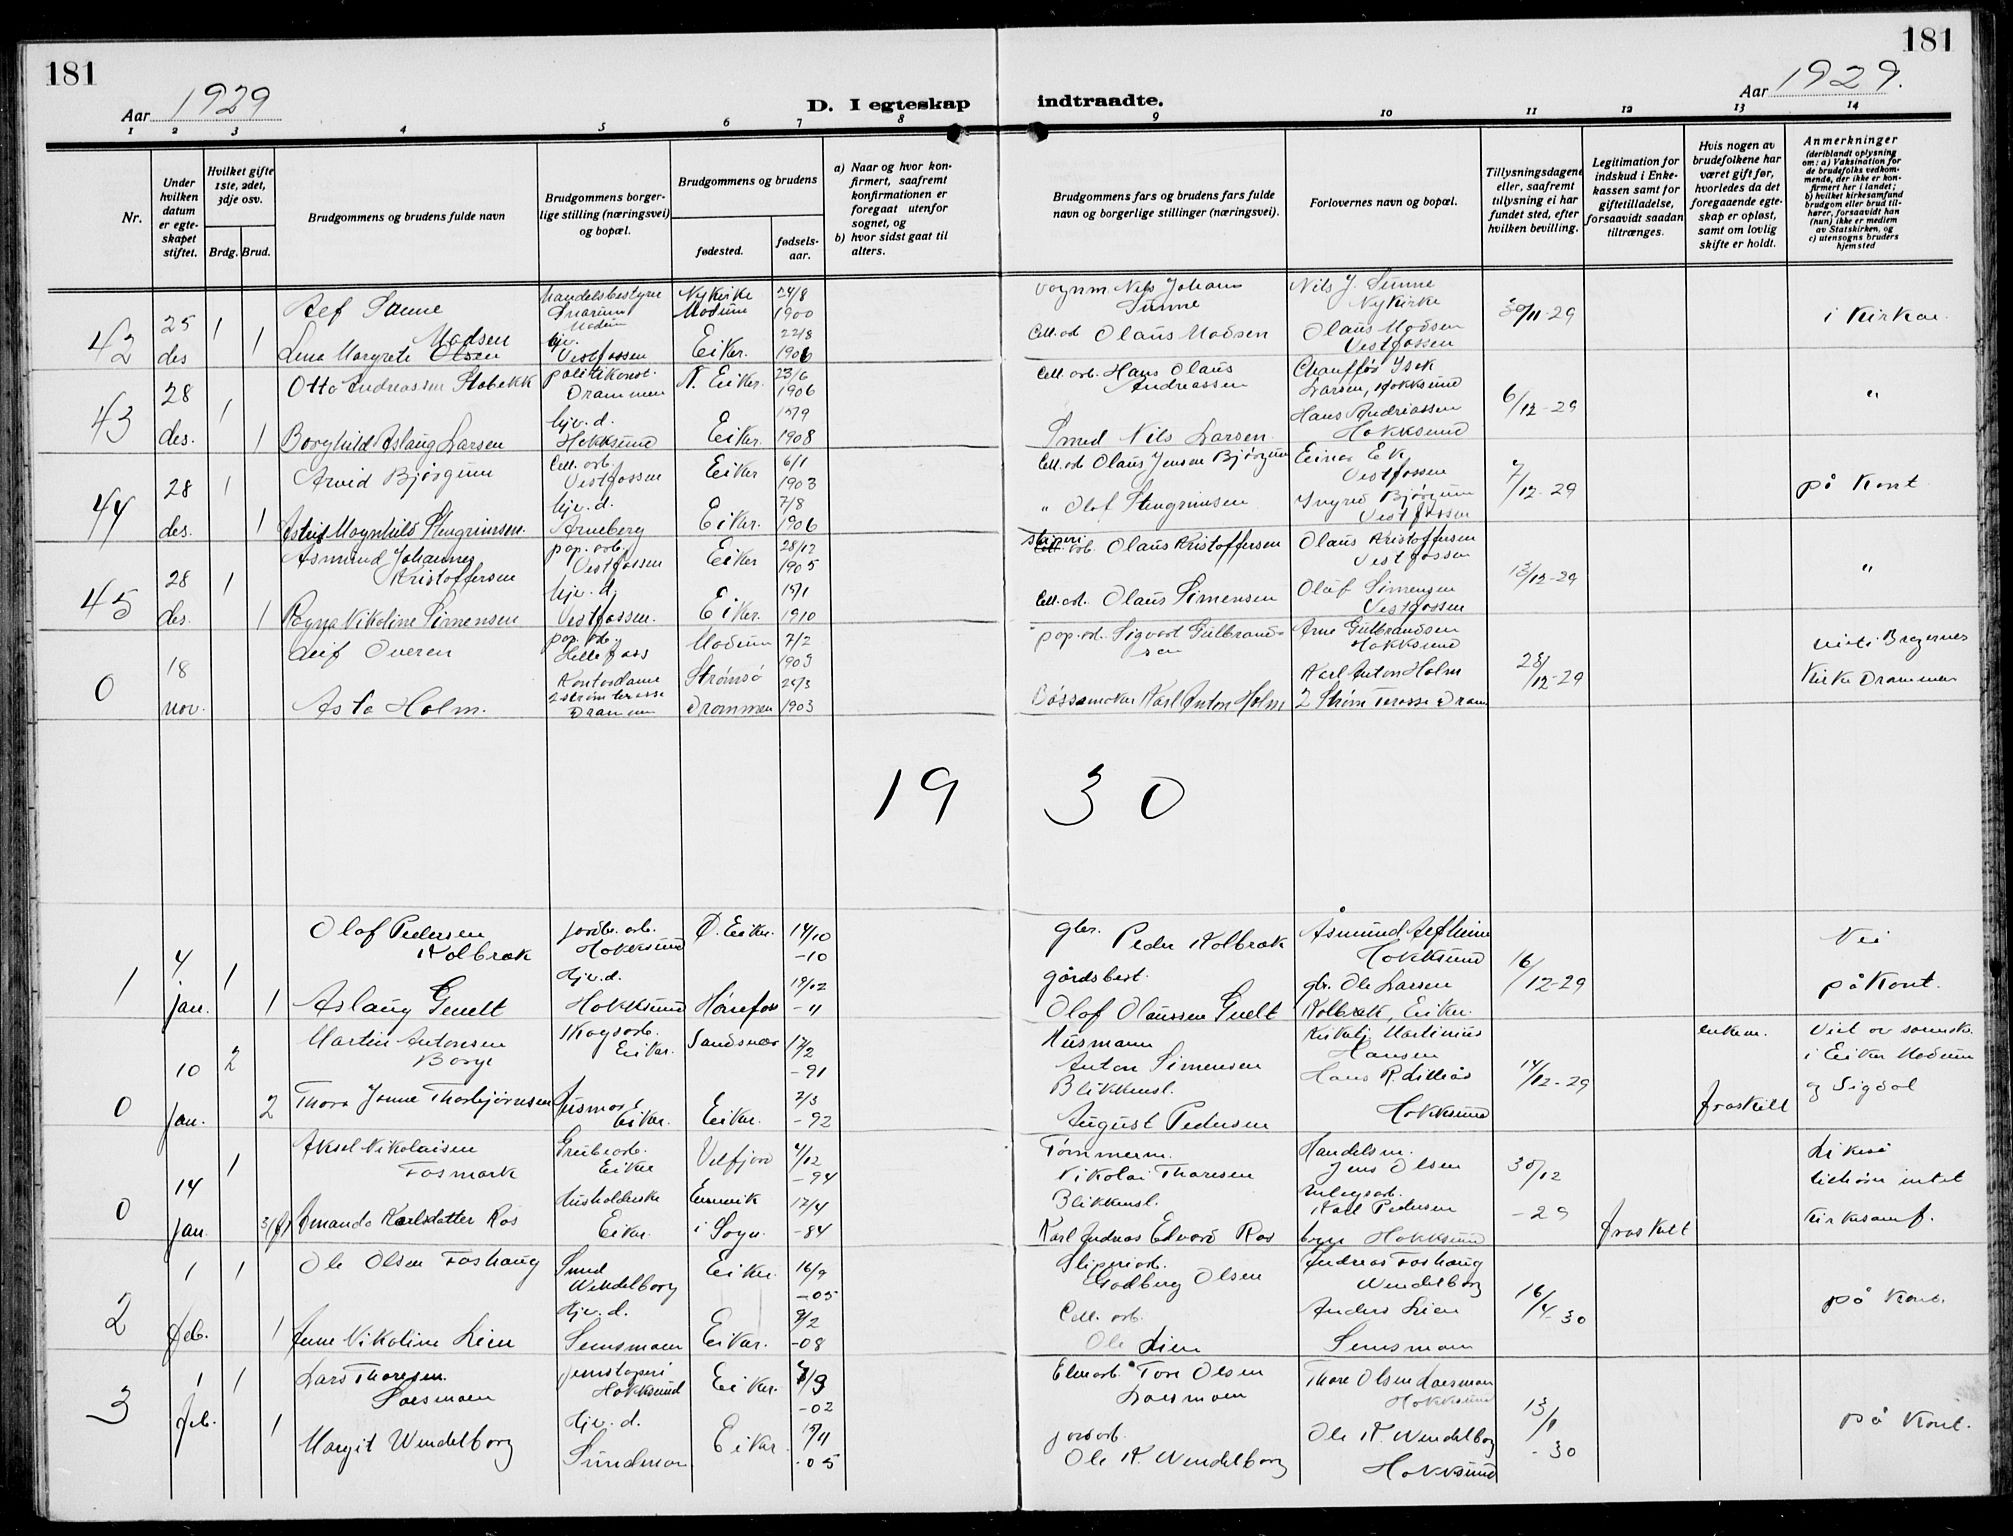 181
181
Aar 1929
D. I egteskap
indtraadte.
Aar 1929.
1 2 3 4 5 6 7 8 9 10 11 12 13 14
Nr.
Under hvilken datum er egte-skapet stiftet.
Hvilket gifte 1ste, 2det, 3dje osv.
Brdg. Brud.
Brudgommens og brudens fulde navn
Brudgommens borger-lige stilling (næringsvei) og bopæl.
Brudgommens og brudens
fødested.
fødsels-aar.
a) Naar og hvor kon-firmert, saafremt konfirmationen er foregaat utenfor sognet, og
b) hvor sidst gaat til alters.
Brudgommens fars og brudens fars fulde navn og borgerlige stillinger (næringsvei).
Forlovernes navn og bopæl.
Tillysningsdagene eller, saafremt tillysning ei har fundet sted, efter hvilken bevilling.
Legitimation for indskud i Enke-kassen samt for giftetilladelse, forsaavidt saadan tiltrænges.
Hvis nogen av brudefolkene har været gift før, hvorledes da det foregaaende egte-skap er opløst, samt om lovlig skifte er holdt.
Anmerkninger
(deriblandt oplysning om: a) Vaksination for de brudefolks vedkom-mende, der ikke er kon-firmert her i landet; b) hvilket kirkesamfund brudgom eller brud til-hører, forsaavidt han (hun) ikke er medlem av Statskirken, og c) utensogns bruders hjemsted
42 25 des 1 1
Sunne handelsbestyrer Snarum Modum Nykirke Modum 24/8 1900
Lena Margrete Madsen Olsen hjv. Vestfossen Eiker. 22/8 1906
vognm Nils Johans Sunne Nils J. Sunne Nykirke 30/11-29 i Kirken
Cell. arb Olaus Madsen Olaus Madsen Vestfossen
43 28 des. 1 1
Otto Andreassen Stabekk politikonst. Drammen N. Eiker. 23/6 1906
Borghild Aslaug Larsen hjv. d. Hokksund Eiker. 15/9 1908
Cell. arb. Hans Olaus Andreassen Chauffør Isak Larsen, Hokksund 6/12-29 "
Smed Nils Larsen Hans Andreassen Hokksund
44 28 des. 1 1
Arvid Bjørgum Cell. arb. Vestfossen Eiker 6/1 1903
Astrid Magnhild Stengrimsen hjv. d. Arneberg Eiker. 7/8 1906
Cell. arb Olaus Jensen Bjørgum Einar Ek Vestfossen 7/12-29 på Kont
" Olof Stengrimsen Ingrid Bjørgum Vestfossen
45 28 des. 1 1
Asmund Johannes Kristoffersen pap. arb. Vestfossen Eiker 28/12 1905
Ragna Nikoline Simensen hjv. d. Vestfossen. Eiker. 15/1 1910
sliperi Cell. arb. Olaus Kristoffersen Olaus Kristoffersen Vestfossen 13/12-29 "
Cell. arb. Olaus Simensen Olaf Simensen Vestfossen
0 18 nov.
Leif Overen pap. arb. Hellefoss Modum 7/2 1903
Asta Holm. Kontordame 2 Strøm terasse Drammen Strømsø Drammen 24/3 1903
pap. arb. Sigvart Gulbrandsen Arne Gulbrandsen Hokksund 28/12-29 viet i Bragernes Kirke Drammen
Bøssemaker Karl Anton Holm Karl Anton Holm 2 Strøm Terasse Dram
19 30
1 4 jan. 1 1
Olaf Pedersen Kolbræk jordbr. arb. Hokksund Ø. Eiker. 14/10 -10
Aslaug Guelt hjv. d. Hokksund Hønefoss 19/12 -11
gbr. Peder Kolbræk Åsmund Hokksund 16/12-29 Vei på Kont.
gårdsbest. Olaf Olaussen Guelt gbr. Ole Larsen Kolbræk, Eiker.
0 10 Jan. 2 2
Martin Antonsen Borge Skogsarb. Eiker. Sandsvær 17/2 -91
Thora Jonne Thorbjørnsen Husmor Eiker. Eiker. 2/3 -92
Husmann Anton Simensen Kirketj. Martinius Hansen 14/12-29 enkem. Viet av sorensk. i Eiker Modum og Sigdal
Blikkensl. August Pedersen Hans R. Lilleås Hokksund fraskilt
0 14 jan. 1 3
Aksel Nikolaisen Fosmark Grubearb. Eiker Velfjord 4/12 -94
Amanda Karlsdatter Ros Husholderske Eiker. i Sogn. 17/4 -84
Tømmerm. Nikolai Thoresen Handelsm. Jens Olsen 30/12 -29 Likeså tilhører intet kirkesamf.
Blikkensl. Karl Andreas Edvard Ros Karl Pedersen Hokksund fraskilt
2 1 feb. 1 1
Ole Olsen Foshaug Smed Wendelborg Eiker. 16/9 -05
Anne Nikoline Lien hjv. d. Semsmoen Eiker. 9/2 -08
Sliperiarb. Godberg Olsen Andreas Foshaug Wendelborg 16/4-30 på Kont.
Cell. arb. Ole Lien Anders Lien Semsmoen
3 1 feb. 1 1
Lars Thoresen Loesmoen jernstøperi Hokksund Eiker. 7/9 -02
Margit Wendelborg hjv. d. Sundmoen Eiker. 15/11 -05
Elvearb. Tore Olsen Loesmoen Thore Olsen Loesmoen Hokksund 13/1 -30 på Kont.
jordarb. Ole K. Wendelborg Ole K. Wendelborg Hokksund